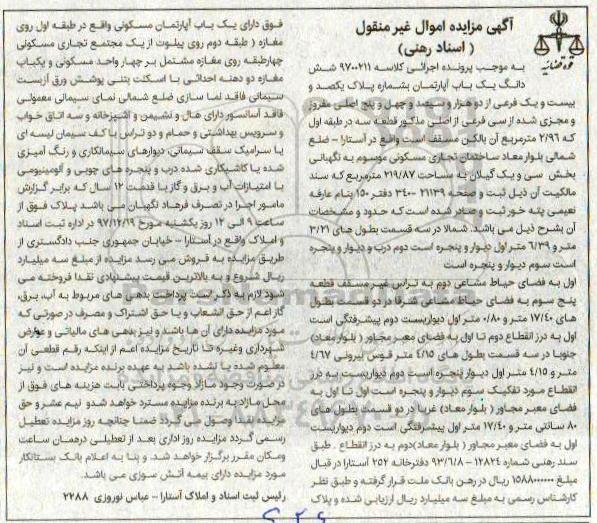 آگهی مزایده اموال غیر منقول
( اسناد رهنی )
قوه قضائیه
به موجب پرونده اجرائی کلاسه ۹۷۰۰۲۱۱ شش
دانگ یک باب آپارتمان بشماره پلاک یکصد و
بیست و یک فرعی از دو هزار و سیصد و چهل و پنج اصلی مفروز
و مجزی شده از سی فرعی از اصلی مذکور قطعه سه در طبقه اول
که ۲/۹۶ مترمربع آن بالکن مسقف است واقع در آستارا – ضلع
شمالی بلوار معاد ساختمان تجاری مسکونی موسوم به نگهبانی
بخش سی و یک گیلان به مساحت ۲۱۹/۸۷ مترمربع که سند
مالکیت آن ذیل ثبت و صفحه ۲۱۱۳۹ -۳۴۰۰ دفتر ۱۵۰ بنام عارفه
نعیمی پته خور ثبت و صادر شده است که حدود و مشخصات
آن بشرح ذیل می باشد. شمالا در سه قسمت بطول های ۳/۲۱
متر و ۶/۳۹ متر اول دیوار و پنجره است دوم درب و دیوار و پنجره
است سوم دیوار و پنجره است
اول به فضای حیاط مشاعی دوم به تراس غیر مسقف قطعه
پنج سوم به فضای حیاط مشاعی شرقا در دو قسمت بطول
های ۱۷/۴۰ متر و ۰/۸۰ متر اول دیواریست دوم پیشرفتگی است
اول به درز انقطاع دوم تا اول به فضای معبر مجاور ( بلوار معاد)
جنوبا در سه قسمت بطول های ۴/۱۵ متر قوس بیرونی ۴/۶۷
متر و ۴/۱۵ متر اول دیوار پنجره است دوم دیواریست به درز
انقطاع مورد تفکیک سوم دیوار و پنجره است اول تا اول به
فضای معبر مجاور ( بلوار معاد) غربا در دو قسمت بطول های
۸۰ سانتی متر و ۱۷/۴۰ متر اول پیشرفتگی است دوم دیواریست
اول به فضای معبر مجاور ( بلوار معاد)دوم به درز انقطاع . طبق
سند رهنی شماره ۱۲۸۲۴ – ۹۳/۶/۸ دفترخانه ۲۵۲ آستارا در قبال
مبلغ ۱۵۸۸۰۰۰۰۰۰ ریال در رهن بانک ملت قرار گرفته و طبق نظر
کارشناس رسمی به مبلغ سه میلیارد ریال ارزیابی شده و پلاک
فوق دارای یک باب آپارتمان مسکونی واقع در طبقه اول روی
مغازه ( طبقه دوم روی پیلوت از یک مجتمع تجاری مسکونی
چهارطبقه روی مغازه مشتمل بر چهار واحد مسکونی و یکباب
مغازه دو دهنه احداثی با اسکلت بتنی پوشش ورق آزبست
سیمانی فاقد نما سازی ضلع شمالی نمای سیمانی معمولی
فاقد آسانسور دارای هال و نشیمن و آشپزخانه و سه اتاق خواب
و سرویس بهداشتی و حمام و دو تراس با کف سیمان لیسه ای
یا سرامیک سقف سیمانی، دیوارهای سیمانکاری و رنگ آمیزی
شده یا کاشیکاری شده درب و پنجره های چوبی و آلومینیومی
با امتیازات آب و برق و گاز با قدمت ۱۲ سال که برابر گزارش
مامور اجرا در تصرف فرهاد نگهبان می باشد پلاک فوق از
ساعت ۹ الی ۱۲ روز یکشنبه مورخ ۹۷/۱۲/۱۹ در اداره ثبت اسناد
و املاک واقع در آستارا – خیابان جمهوری جنب دادگستری از
طریق مزایده به فروش می رسد مزایده از مبلغ سه میلیارد
ریال شروع و به بالاترین قیمت پیشنهادی نقدا فروخته می
شود لازم به ذکر است پرداخت بدهی های مربوط به آب، برق،
گاز اعم از حق انشعاب و یا حق اشتراک و مصرف در صورتی که
مورد مزایده دارای آن ها باشد و نیز بدهی های مالیاتی و عوارض
شهرداری وغیره تا تاریخ مزایده اعم از اینکه رقم قطعی آن
معلوم شده یا نشده باشد به عهده برنده مزایده است و نیز
در صورت وجود مازاد وجوه پرداختی بابت هزینه های فوق از
محل مازاد به برنده مزایده مسترد خواهد شد و نیم عشر و حق
مزایده نقدا وصول می گردد ضمنا چنانچه روز مزایده تعطیل
رسمی گردد مزایده روز اداری بعد از تعطیلی درهمان ساعت
ومکان مقرر برگزار خواهد شد. و بنا به اعلام بانک بستانکار
مورد مزایده دارای بیمه آتش سوزی می باشد.
رئیس ثبت اسناد و املاک آستارا – عباس نوروزی ۲۲۸۸